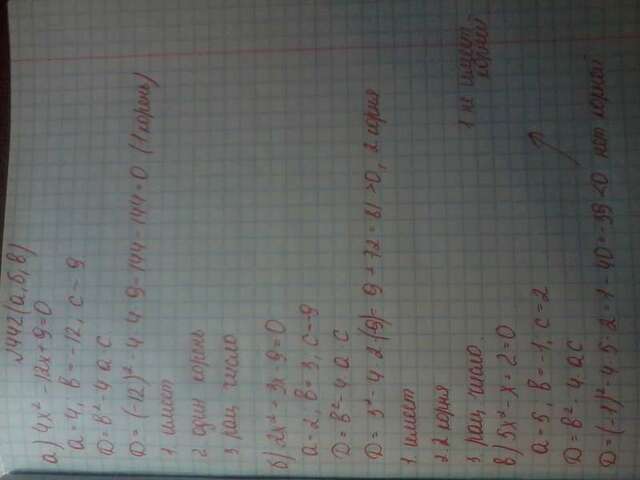 №442 (а, б, в)
а) 4x² - 12x + 9 = 0
a = 4, b = -12, c - 9
D = b² - 4 a c
D = (-12)² - 4 4 9 = 144 - 144 = 0 (1 корень)
1 имеет
2 один корень
3 рац число
б) 2x² - 3x - 9 = 0
a = 2, b = 3, c = -9
D = b² - 4 a c
D = 3² - 4 · 2 · (-9) = 9 + 72 = 81 > 0, 2 корня
1 имеет
2. 2 корня
3 рац число.
1 не имеет корней
в) 5x² - x = 2 = 0
a = 5, b = -1, c = 2
D = b² - 4 · a c
D = (-1)² - 4 · 5 · 2 = 1 - 40 = -39 < 0 нет корней